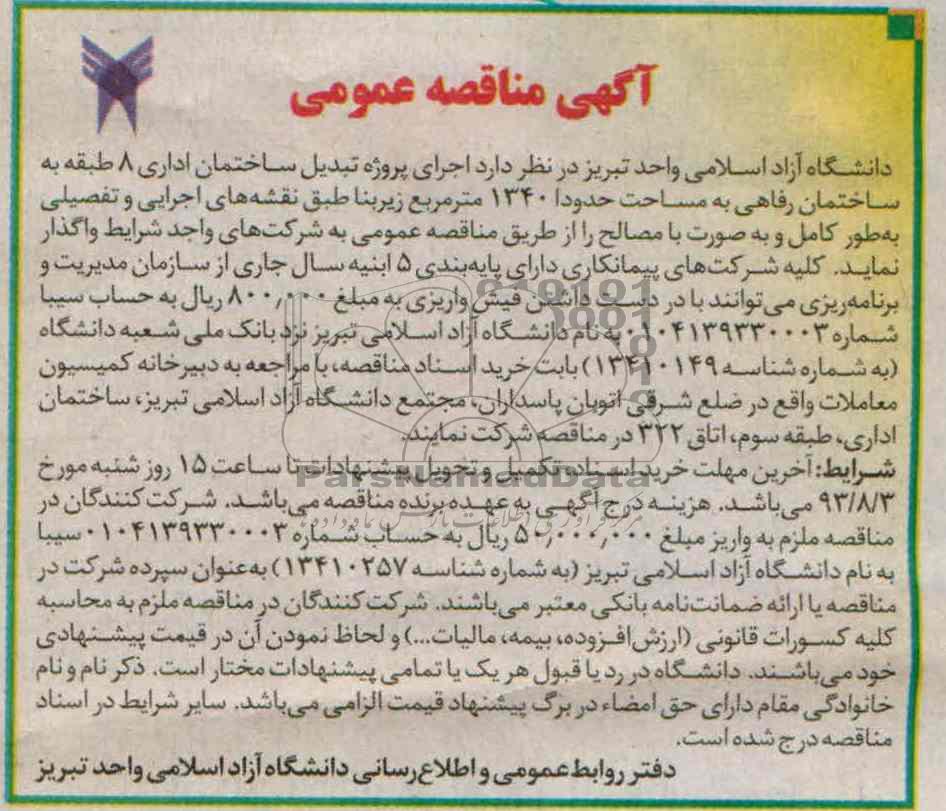 آگهی مناقصه عمومی
دانشگاه آزاد اسلامی واحد تبریز در نظر دارد اجرای پروژه تبدیل ساختمان اداری ۸ طبقه به
ساختمان رفاهی به مساحت حدودا ۱۳۴۰ مترمربع زیربنا طبق نقشه‌های اجرایی و تفصیلی
به‌طور کامل و به صورت با مصالح را از طریق مناقصه عمومی به شرکت‌های واجد شرایط واگذار
نماید. کلیه شرکت‌های پیمانکاری دارای پایه‌بندی ۵ ابنیه سال جاری از سازمان مدیریت و
برنامه‌ریزی می‌توانند با در دست داشتن فیش واریزی به مبلغ ۸۰۰٫۰۰۰ ریال به حساب سیبا
شماره ۰۱۰۴۱۳۹۳۳۰۰۰۳ به نام دانشگاه آزاد اسلامی تبریز نزد بانک ملی شعبه دانشگاه
(به شماره شناسه ۱۳۴۱۰۱۴۹) بابت خرید اسناد مناقصه، با مراجعه به دبیرخانه کمیسیون
معاملات واقع در ضلع شرقی اتوبان پاسداران، مجتمع دانشگاه آزاد اسلامی تبریز، ساختمان
اداری، طبقه سوم، اتاق ۳۲۲ در مناقصه شرکت نمایند.
شرایط: آخرین مهلت خرید اسناد، تکمیل و تحویل پیشنهادات تا ساعت ۱۵ روز شنبه مورخ
۹۳/۸/۳ می‌باشد. هزینه درج آگهی به عهده برنده مناقصه می‌باشد. شرکت کنندگان در
مناقصه ملزم به واریز مبلغ ۵۰٫۰۰۰٫۰۰۰ ریال به حساب شماره ۰۱۰۴۱۳۹۳۳۰۰۰۳ سیبا
به نام دانشگاه آزاد اسلامی تبریز (به شماره شناسه ۱۳۴۱۰۲۵۷) به‌عنوان سپرده شرکت در
مناقصه یا ارائه ضمانت‌نامه بانکی معتبر می‌باشند. شرکت کنندگان در مناقصه ملزم به محاسبه
کلیه کسورات قانونی (ارزش‌افزوده، بیمه، مالیات...) و لحاظ نمودن آن در قیمت پیشنهادی
خود می‌باشند. دانشگاه در رد یا قبول هر یک یا تمامی پیشنهادات مختار است. ذکر نام و نام
خانوادگی مقام دارای حق امضاء در برگ پیشنهاد قیمت الزامی می‌باشد. سایر شرایط در اسناد
مناقصه درج شده است.
دفتر روابط عمومی و اطلاع‌رسانی دانشگاه آزاد اسلامی واحد تبریز
ParsNamadData